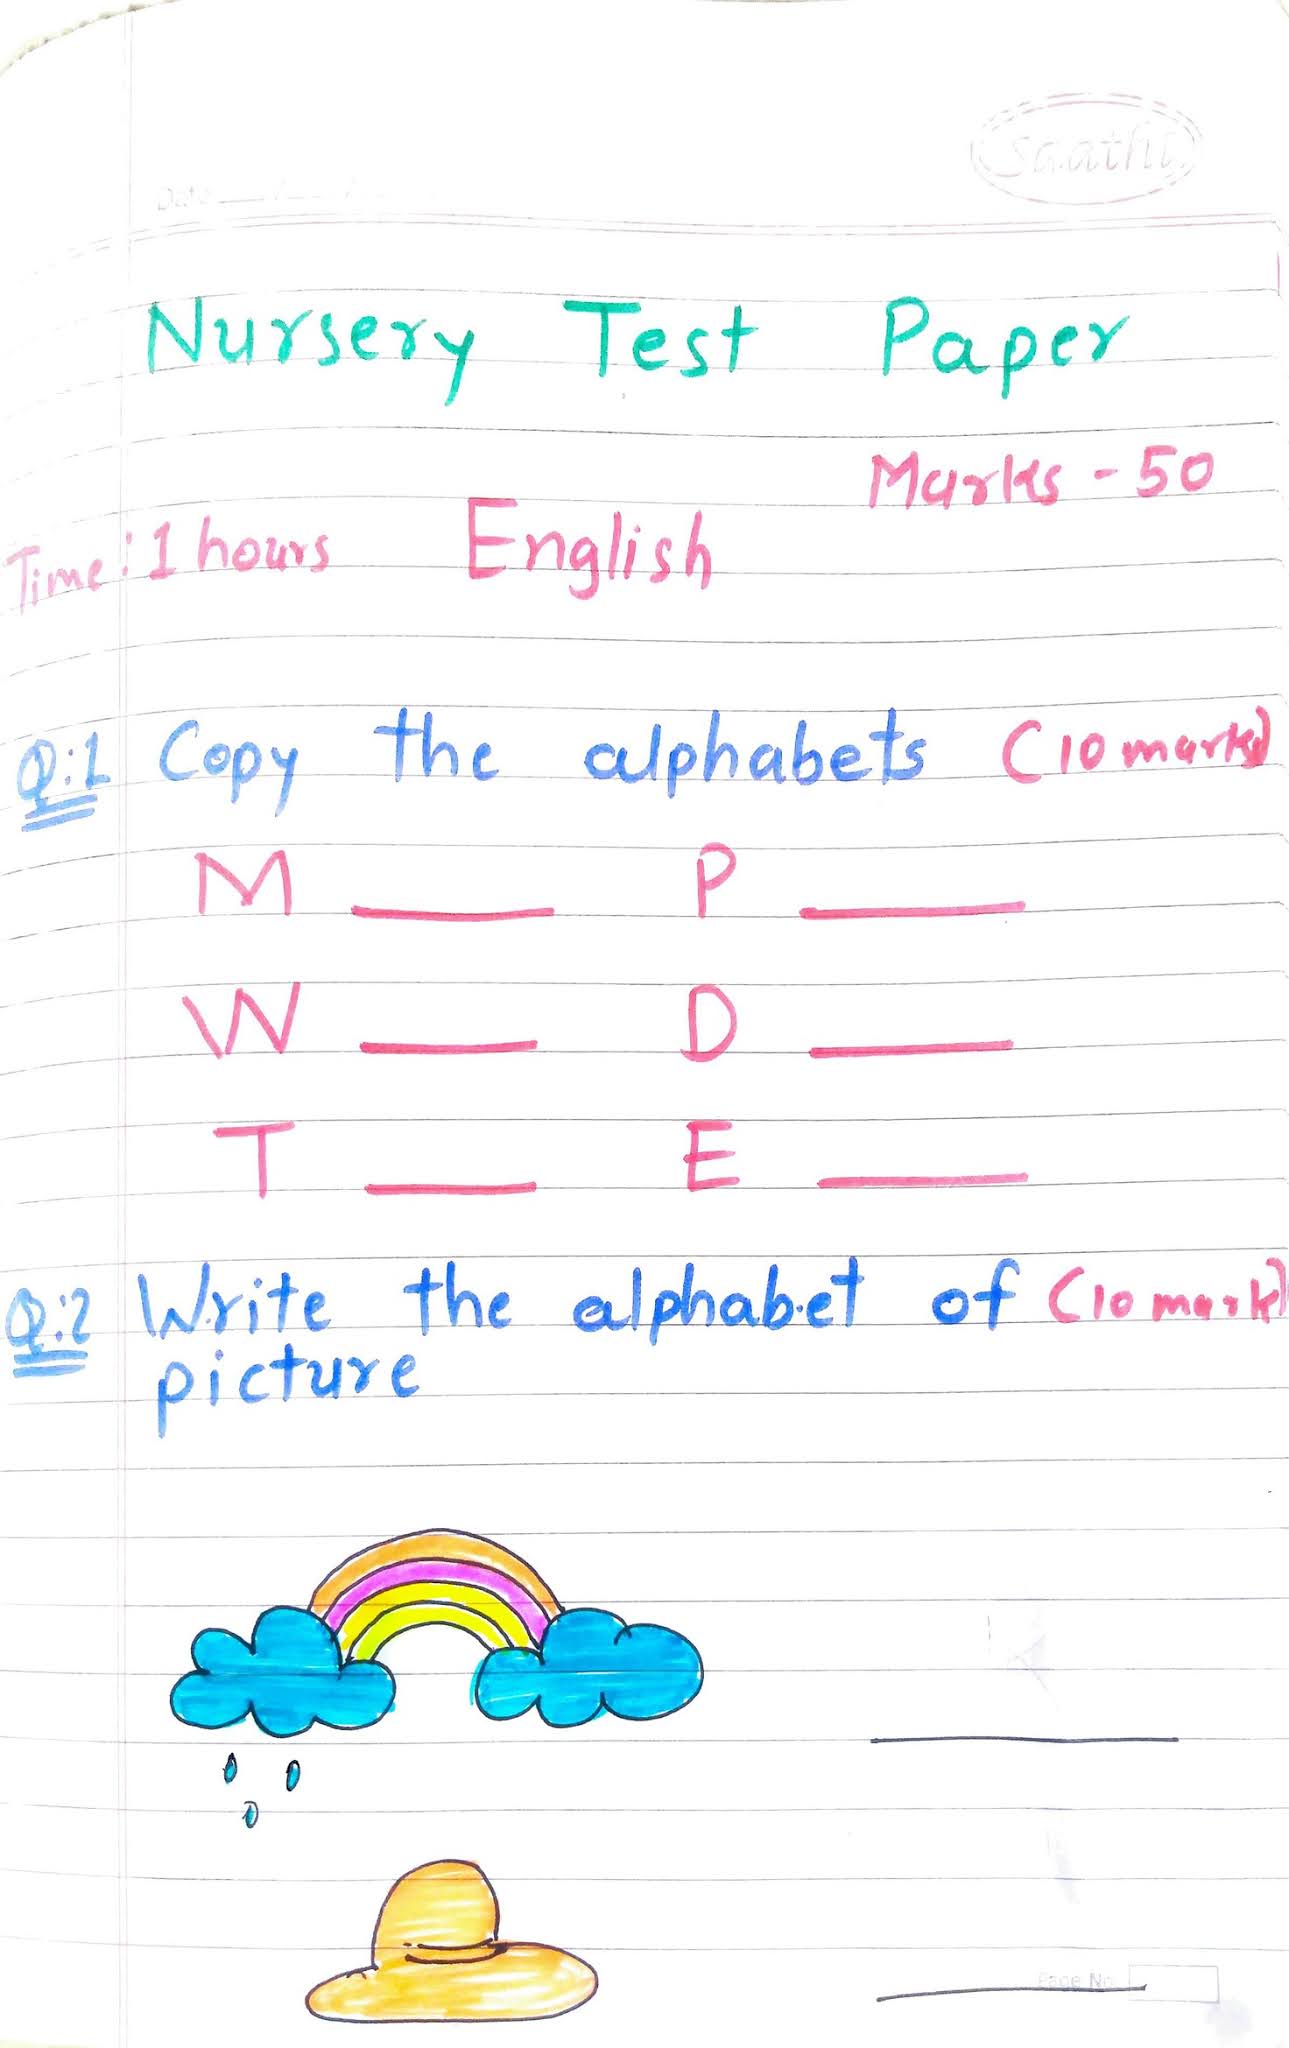 Saathi
Date ___/___/
Nursery Test Paper
Marks - 50
Time: 1 hours English
Q:1 Copy the alphabets (10 marks)
M ____ P ____
W ____ D ____
T ____ E ____
Q:2 Write the alphabet of (10 mark)
picture
Page No.